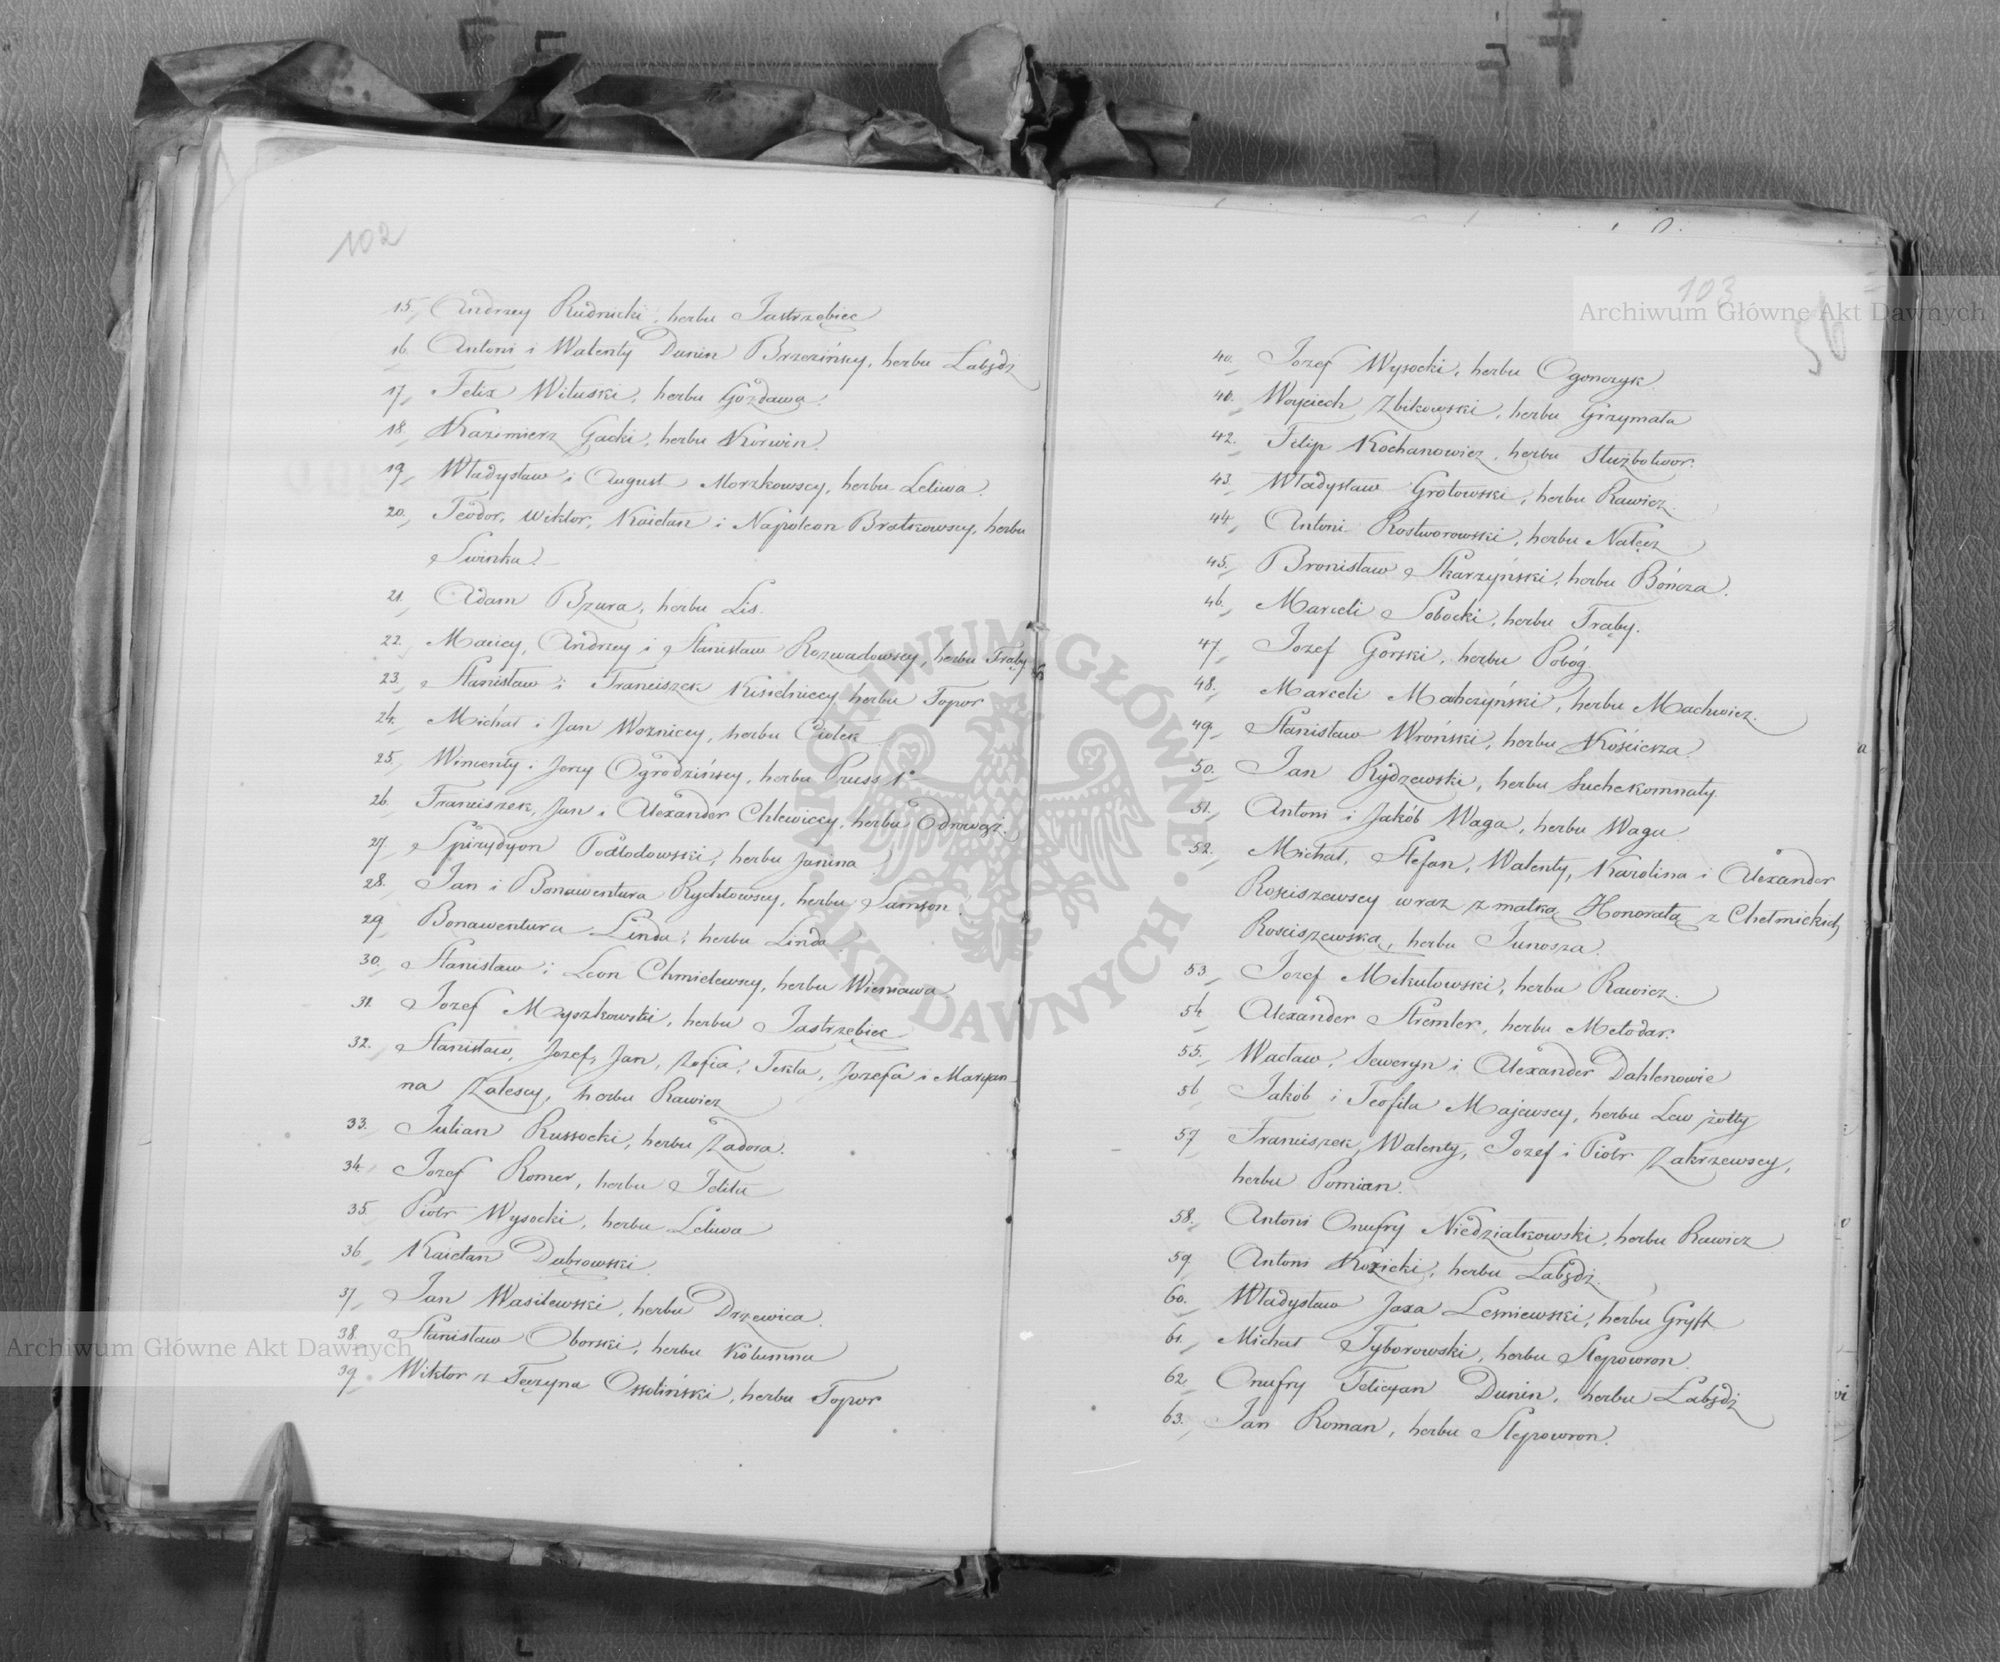 102
15, Andrzey Rudnicki, herbu Jastrzębiec
16. Antoni i Walenty Dunin Brzezińscy, herbu Łabędź
17, Felix Wituski, herbu Gozdawa.
18. Kazimierz Gacki, herbu Korwin.
19, Władysław i August Morzkowscy, herbu Leliwa.
20, Teodor, Wiktor, Kaietan i Napoleon Bratkowscy, herbu
Swinka.
21. Adam Bzura, herbu Lis.
22. Maciey, Andrzey i Stanisław Rozwadowscy, herbu Trąby
23. Stanisław i Franciszek Kisielniccy, herbu Topor
24. Michał i Jan Wozniccy, herbu Ciołek
25, Wincenty i Jerzy Ogrodzińscy, herbu Pruss 1°
26. Franciszek, Jan i Alexander Chlewiccy, herbu Odrowąż.
27, Spirydyon Podłodowski, herbu Janina
28. Jan i Bonawentura Rychłowscy, herbu Samson.
29, Bonawentura Linda, herbu Linda.
30. Stanisław i Leon Chmielewscy, herbu Wieniawa
31. Jozef Myszkowski, herbu Jastrzębiec
32. Stanisław, Jozef, Jan, Zofia, Tekla, Jozefa i Maryan-
na Zalescy, herbu Rawicz
33. Julian Russocki, herbu Zadora.
34. Jozef Romer, herbu Jelita
35. Piotr Wysocki, herbu Leliwa
36, Kaietan Dąbrowski.
37, Jan Wasilewski, herbu Drzewica.
38. Stanisław Oborski, herbu Kolumna
39. Wiktor z Tęczyna Ossoliński, herbu Topor
103
56
40. Jozef Wysocki, herbu Ogonczyk
41. Woyciech Zbikowski, herbu Grzymała
42. Filip Kochanowicz, herbu Służbotwor.
43. Władysław Grotowski, herbu Rawicz.
44, Antoni Rostworowski, herbu Nałęcz
45. Bronisław Skarzyński, herbu Bończa.
46, Marceli Sobocki, herbu Trąby.
47, Jozef Gorski, herbu Pobóg.
48. Marceli Machczyński, herbu Machwicz.
49, Stanisław Wroński, herbu Kościesza.
50. Jan Rydzewski, herbu Suchekomnaty.
51. Antoni i Jakób Waga, herbu Waga
52. Michał, Stefan, Walenty, Karolina i Alexander
Rościszewscy wraz z matką Honoratą z Chełmickich
Rościszewską, herbu Junosza.
53, Jozef Mikułowski, herbu Rawicz.
54 Alexander Stremler, herbu Melodar.
55. Wacław, Seweryn i Alexander Dahlenowie
56 Jakób i Teofila Majewscy, herbu Lew żółty
57 Franciszek, Walenty, Jozef i Piotr Zakrzewscy,
herbu Pomian.
58. Antoni Onufry Niedziałkowski, herbu Rawicz
59. Antoni Kozicki, herbu Łabędź.
60. Władysław Jaxa Leśniewski, herbu Gryff
61. Michał Tyborowski, herbu Slepowron.
62. Onufry Felicyan Dunin, herbu Łabędź
63. Jan Roman, herbu Slepowron.
Archiwum Główne Akt Dawnych
Archiwum Główne Akt Dawnych
ARCHIWUM GŁÓWNE · AKT DAWNYCH ·